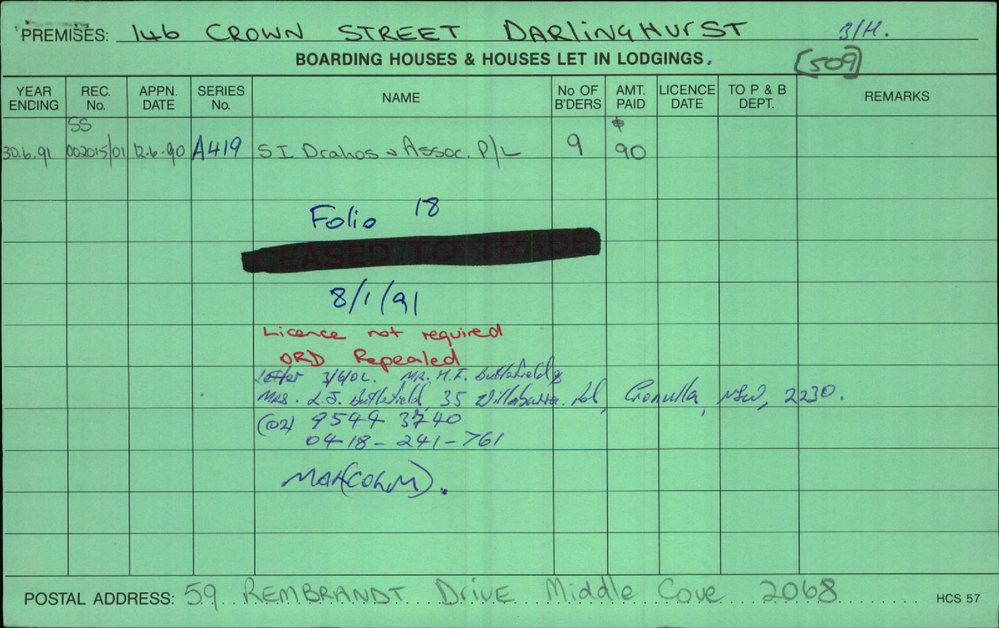 PREMISES: 146 CROWN STREET DARLINGHURST B/H.
BOARDING HOUSES & HOUSES LET IN LODGINGS. (509)
YEAR ENDING REC. No. APPN. DATE SERIES No. NAME No OF B'DERS AMT. PAID LICENCE DATE TO P & B DEPT. REMARKS
SS $
30.6.91 002015/01 12.6.90 A419 SI Drahos & Assoc. P/L 9 90
Folio 18
CEASED TO TRADE
8/1/91
Licence not required
ORD Repealed
Letter 3/6/02. MR. H.F. Buttsfield &
MRS. L.J. Buttsfield, 35 Rd, Cronulla, NSW, 2230.
(02) 9544 3740
04-18-241-761
MAL(COLM).
POSTAL ADDRESS: 59 REMBRANDT Drive Middle Cove 2068 HCS 57